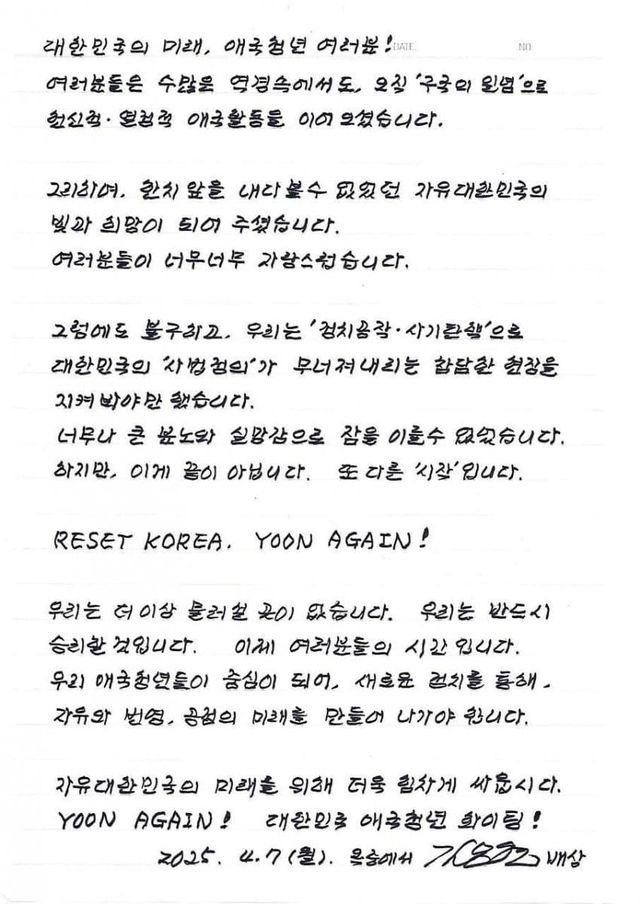 대한민국의 미래, 애국청년 여러분! DATE. NO.
여러분들은 수많은 역경속에서도, 오직 '구국의 일념'으로
헌신적·열정적 애국활동을 이어오셨습니다.
그리하여, 한치 앞을 내다볼수 없었던 자유대한민국의
빛과 희망이 되어 주셨습니다.
여러분들이 너무너무 자랑스럽습니다.
그럼에도 불구하고, 우리는 '정치공작·사기탄핵'으로
대한민국의 '사법정의'가 무너져내리는 참담한 현장을
지켜봐야만 했습니다.
너무나 큰 분노와 실망감으로 잠을 이룰수 없었습니다.
하지만, 이게 끝이 아닙니다. 또 다른 '시작'입니다.
RESET KOREA. YOON AGAIN!
우리는 더이상 물러설 곳이 없습니다. 우리는 반드시
승리할 것입니다. 이제 여러분들의 시간입니다.
우리 애국청년들이 중심이 되어, 새로운 정치를 통해,
자유와 번영, 공정의 미래를 만들어 나가야 합니다.
자유대한민국의 미래를 위해 더욱 힘차게 싸웁시다.
YOON AGAIN! 대한민국 애국청년 화이팅!
2025. 4.7(월). 옥중에서 배상